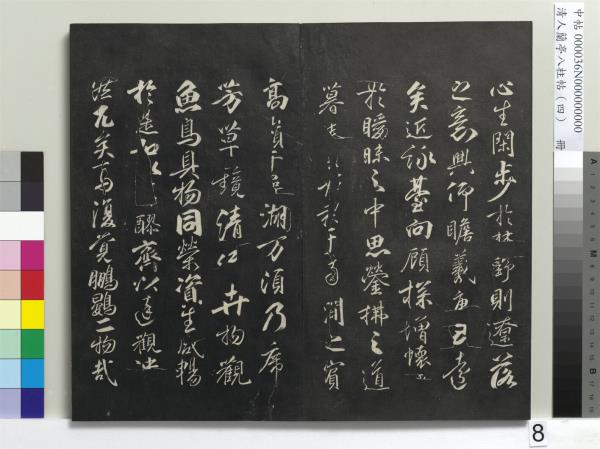 中帖 000036N000000000
清人蘭亭八柱帖（四） 冊
心生閑步於林野則遼落
之意興仰瞻羲唐已遠
矣近詠臺向顧探增懷
於曖昧之中思縈拂之道
暮春 于南澗之賓
高嶺千尋湖万頃乃席
芳草鏡清流卉物觀
魚鳥具物同榮資生咸暢
於是和以醪齊以達觀泱
然兀矣焉復覺鵬鷃二物哉
8